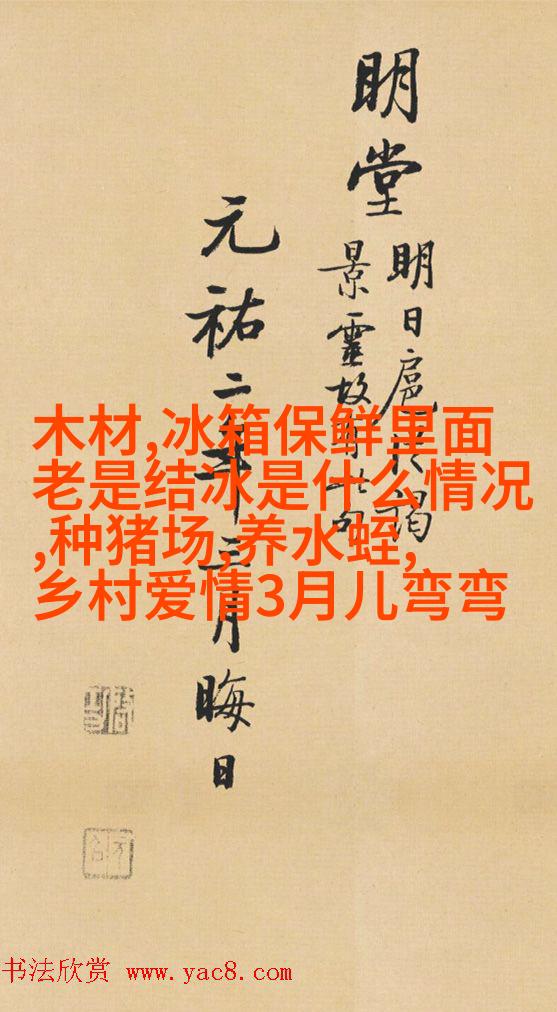 明堂
明日扈從謁
景靈故有此句
元祐二年三月晦日
木材,冰箱保鲜里面
老是结冰是什么情况
,种猪场,养水蛭,
乡村爱情3月儿弯弯
书法欣赏 www.yac8.com